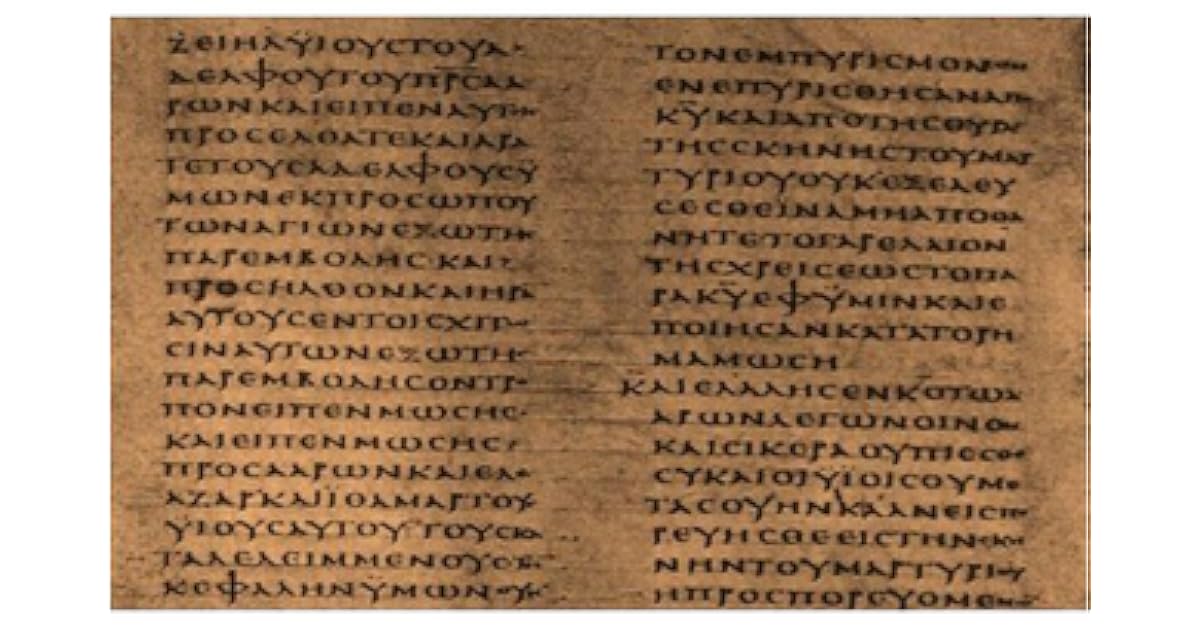 ΖΕΙΗΛΫΙΟΥϹΤΟΥΑ
ΔΕΛΦΟΥΤΟΥΠΡ̅Ϲ̅ΑΑ
ΡΩΝΚΑΙΕΙΠΕΝΑΥΤ
ΠΡΟϹΕΛΘΑΤΕΚΑΙΑΡΑ
ΤΕΤΟΥϹΑΔΕΛΦΟΥϹΫ
ΜΩΝΕΚΠΡΟϹΩΠΟΥ
ΤΩΝΑΓΙΩΝΕΞΩΤΗ
ΠΑΡΕΜΒΟΛΗϹ·ΚΑΙ
ΠΡΟϹΗΛΘΟΝΚΑΙΗΡΑ
ΑΥΤΟΥϹΕΝΤΟΙϹΧΙΤ
ϹΙΝΑΥΤΩΝΕΞΩΤΗ
ΠΑΡΕΜΒΟΛΗϹΟΝΤΡ
ΠΟΝΕΙΠΕΝΜΩϹΗϹ
ΚΑΙΕΙΠΕΝΜΩϹΗϹ
ΠΡΟϹΑΑΡΩΝΚΑΙΕΛ
ΑΖΑΡΚΑΙΪΘΑΜΑΡΤΟΥ
ΫΙΟΥϹΑΥΤΟΥΤΟΥϹΚ
ΤΑΛΕΛΕΙΜΜΕΝΟΥϹ
ΚΕΦΑΛΗΝΫΜΩΝΟΥΚ
ΤΟΝΕΜΠΥΡΙϹΜΟΝ
ΕΝΕΠΥΡΙϹΘΗϹΑΝΑΠ
Κ̅Υ̅ΚΑΙΑΠΟΤΗϹΘΥΡ
ΤΗϹϹΚΗΝΗϹΤΟΥΜΑΡ
ΤΥΡΙΟΥΟΥΚΕΞΕΛΕΥ
ϹΕϹΘΕΪΝΑΜΗΑΠΟΘΑ
ΝΗΤΕΤΟΓΑΡΕΛΑΙΟΝ
ΤΗϹΧΡΕΙϹΕΩϹΤΟΠΑ
ΡΑΚ̅Υ̅ΕΦΫΜΙΝΚΑΙΕ
ΠΟΙΗϹΑΝΚΑΤΑΤΟΡΗ
ΜΑΜΩϹΗ
ΚΑΙΕΛΑΛΗϹΕΝΚ̅Ϲ̅ΤΩΑ
ΑΡΩΝΛΕΓΩΝΟΙΝΟ
ΚΑΙϹΙΚΕΡΑΟΥΠΙΕϹΘ
ϹΥΚΑΙΟΙΫΪΟΙϹΟΥΜ
ΤΑϹΟΥΗΝΚΑΑΝΕΙϹΠ
ΡΕΥΗϹΘΕΕΙϹΤΗΝϹΚ
ΝΗΝΤΟΥΜΑΡΤΥΡΙΟΥ
ΗΠΡΟϹΠΟΡΕΥΟΜΕ